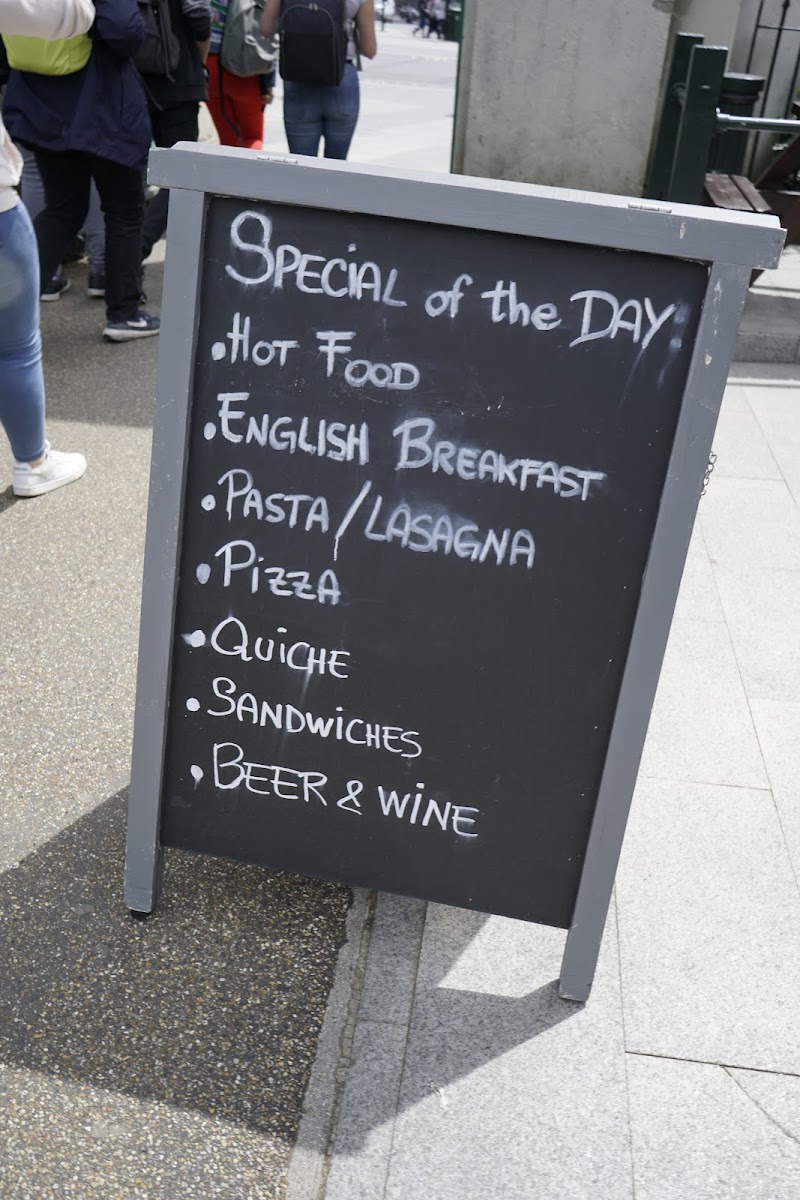 SPECiAL of the DAY:
• HOT FOOD
• ENGLISH BREAKFAST
• PASTA / LASAGNA
• PiZZA
• QUiCHE
• SANDWiCHES
• BEER & WiNE